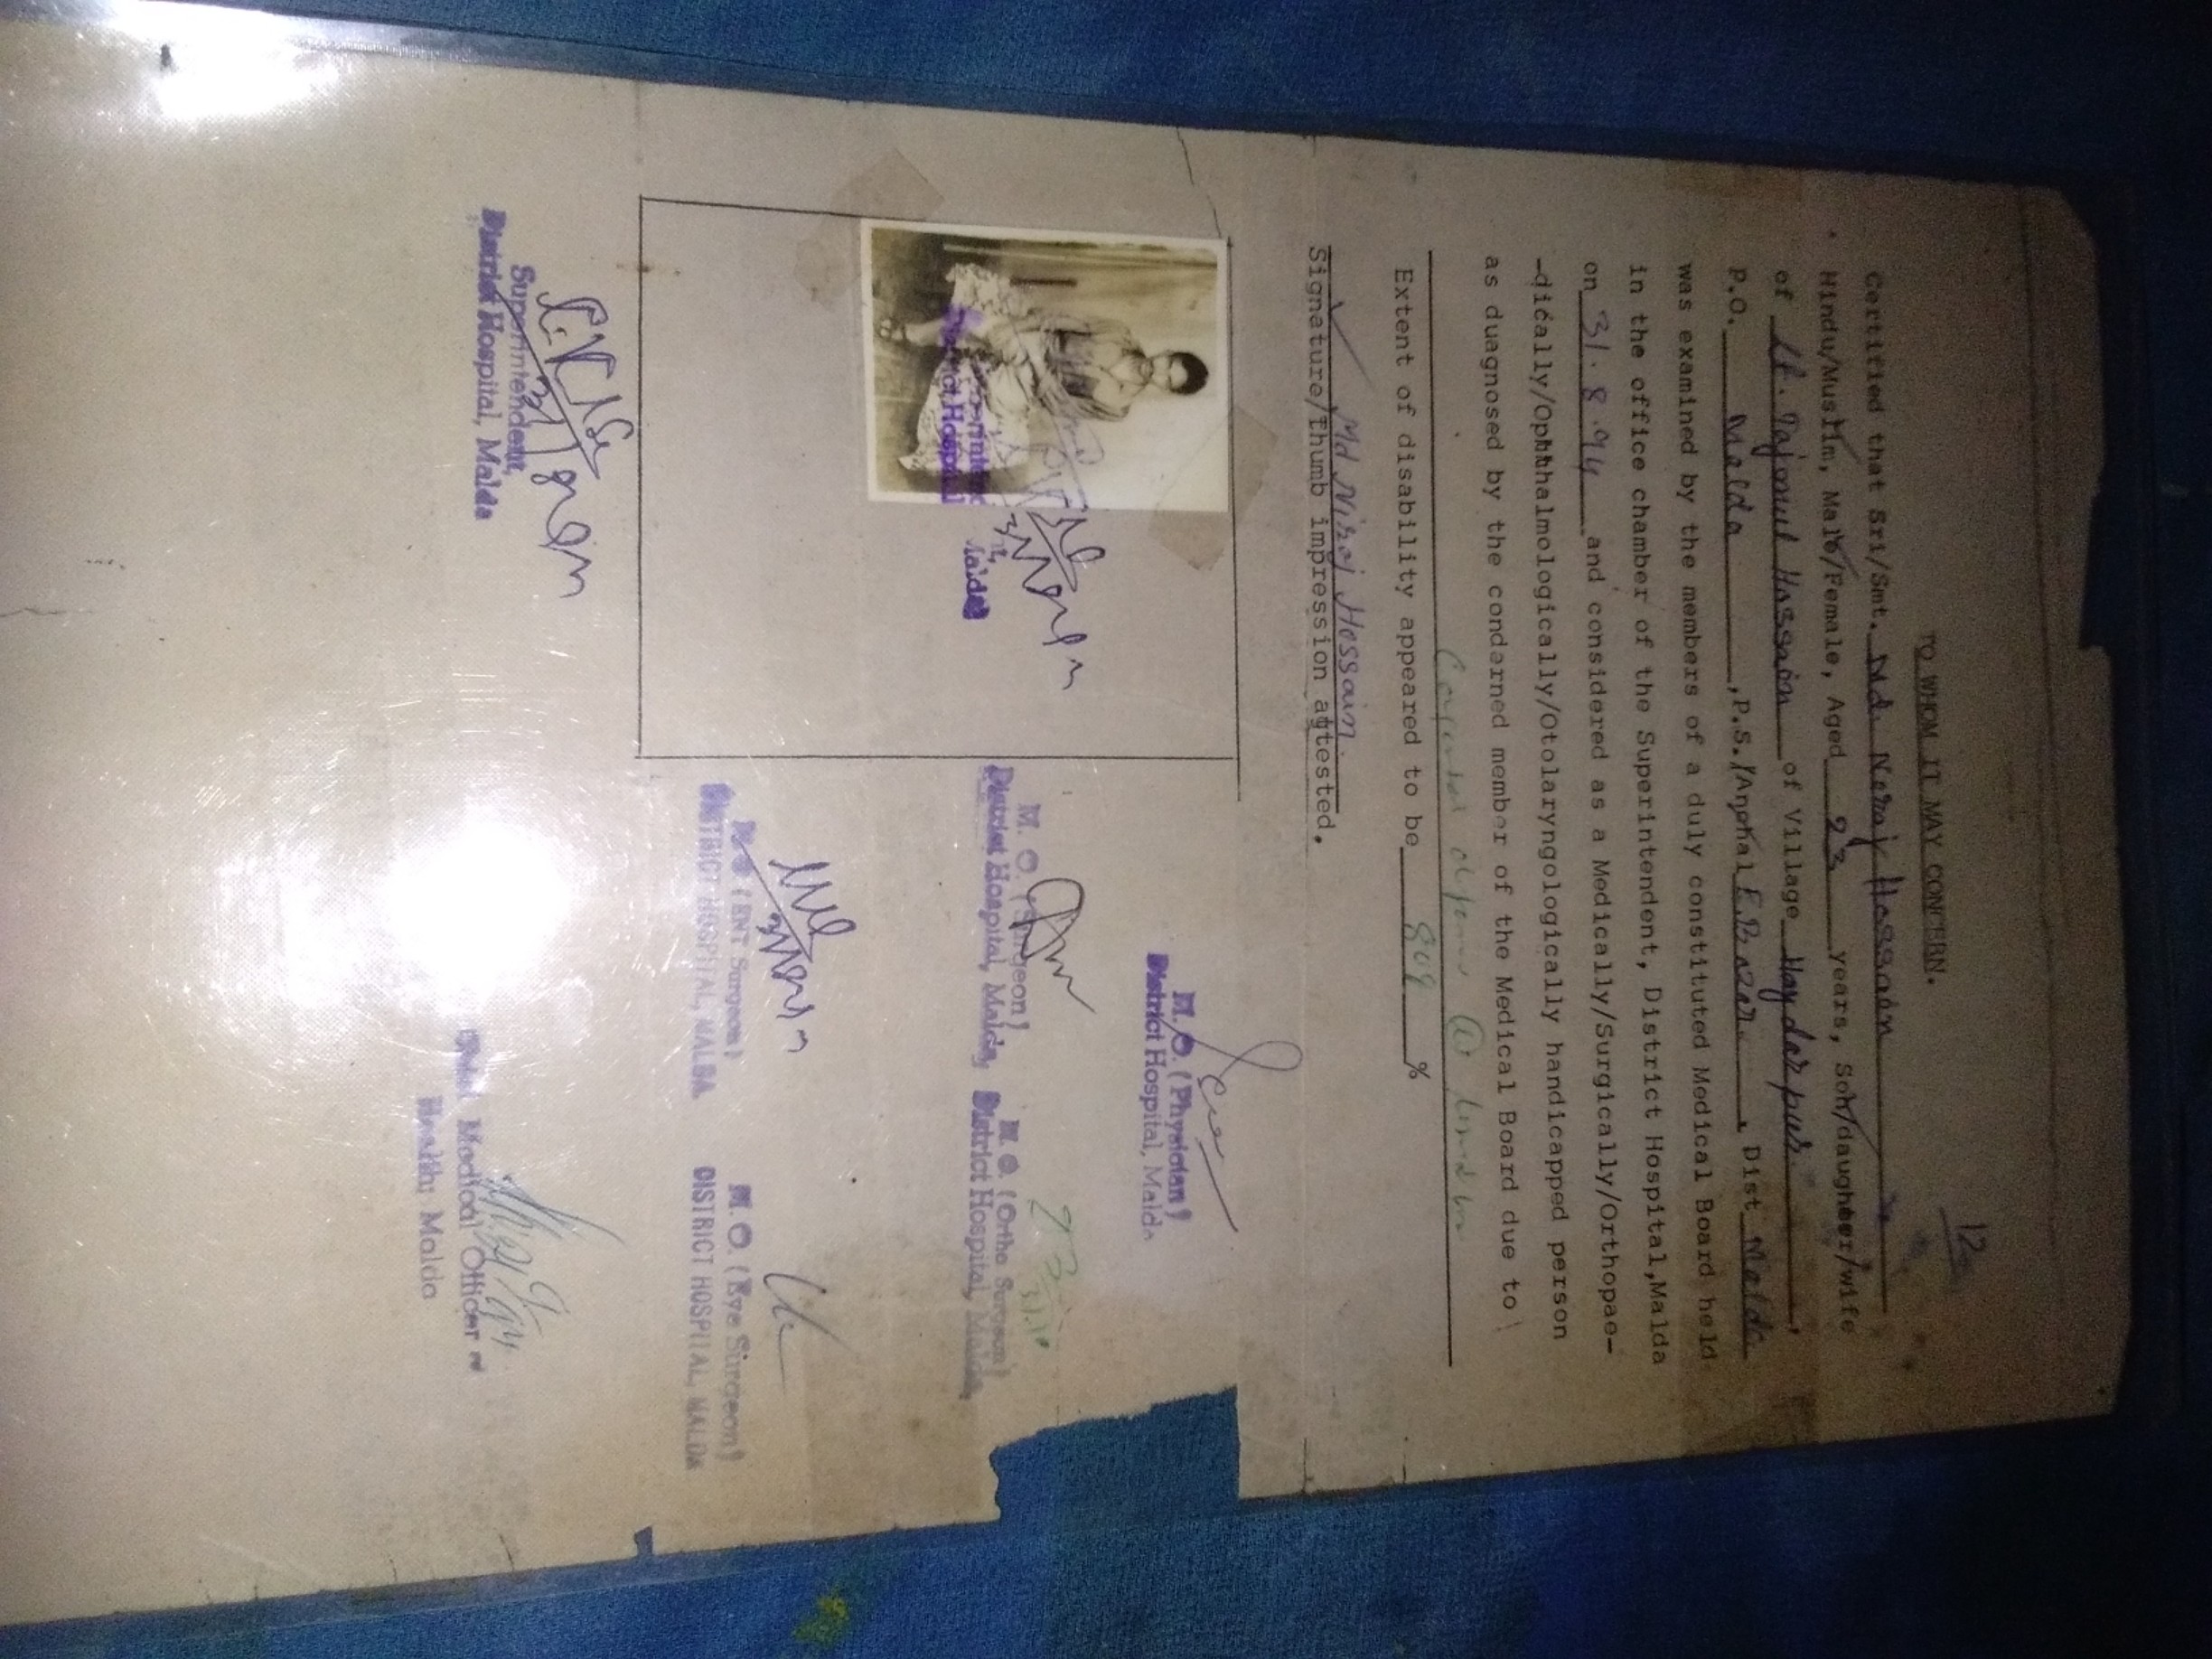 12
TO WHOM IT MAY CONCERN.
Certified that Sri/Smt. Md. Neraj Hossain
Hindu/Muslim, Male/Female, Aged 23 years, Son/daughter/wife
of Lt. Tajmul Hossain of Village Haydarpur,
P.O. Malda, P.S./Anchal E.Bazar. Dist Malda
was examined by the members of a duly constituted Medical Board held
in the office chamber of the Superintendent, District Hospital,Malda
on 31.8.94 and considered as a Medically/Surgically/Orthopae-
-dically/Ophthalmologically/Otolaryngologically handicapped person
as duagnosed by the condarned member of the Medical Board due to
Extent of disability appeared to be 80%
Md Niroj Hossain.
Signature/Thumb impression attested.
M. O. (Physician)
District Hospital, Malda
M. O. (Surgeon)
District Hospital, Malda,
M. O. (Ortho Surgeon)
District Hospital, Malda,
(ENT Surgeon)
DISTRICT HOSPITAL, MALDA
M. O. (Eye Surgeon)
DISTRICT HOSPITAL, MALDA
Superintendent,
District Hospital, Malda
Chief Medical Officer of
Health, Malda